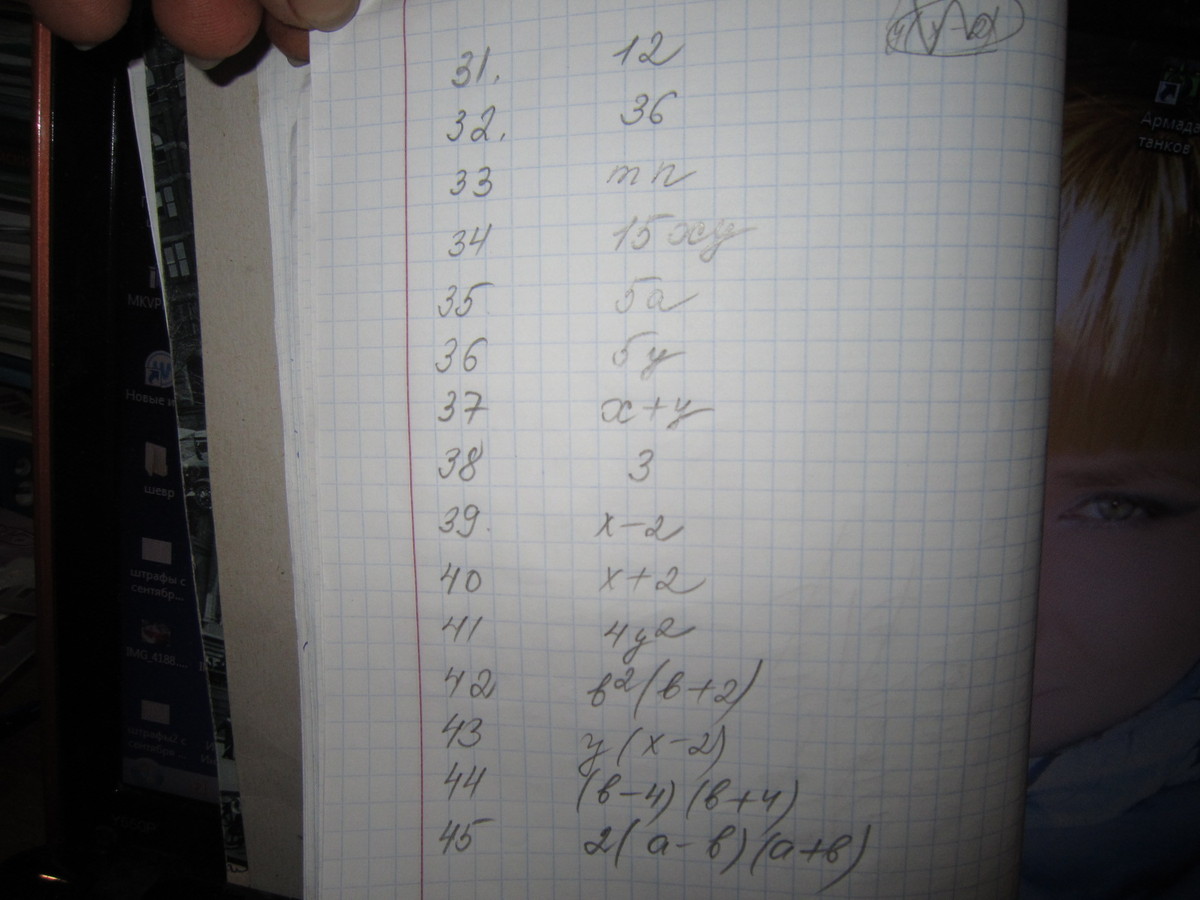 31. 12
32. 36
33 mn
34 15xy
35 5a
36 5y
37 x+y
38 3
39. x-2
40 x+2
41 4y²
42 в²(в+2)
43 y(x-2)
44 (в-4)(в+4)
45 2(a-в)(a+в)
Новые
шевр
штрафы с
сентябр...
IMG_4188....
штрафы2 с
сентября ...
танков